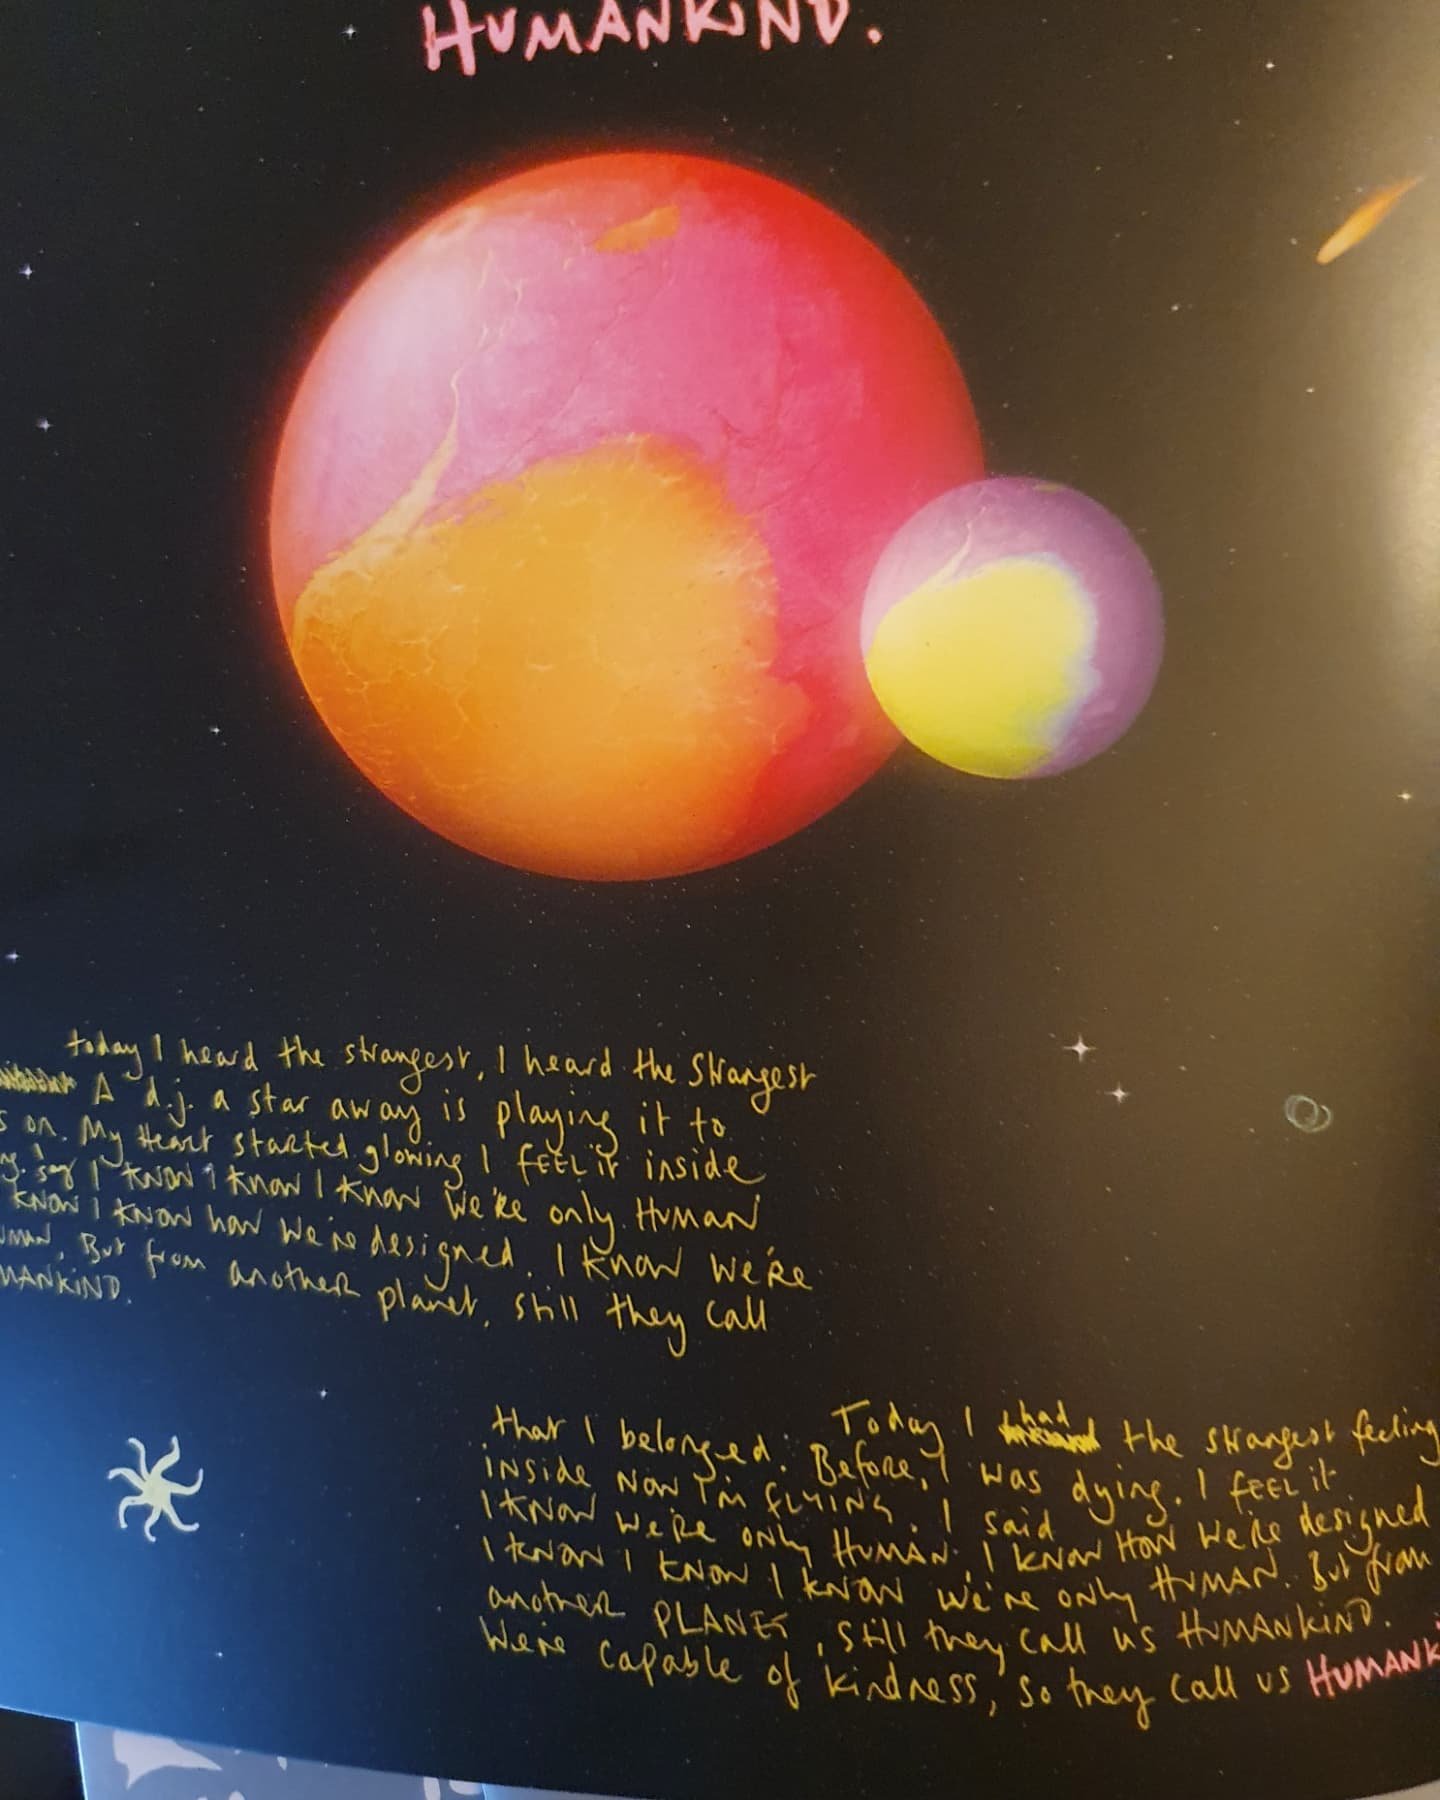 HUMANKIND.
today I heard the strangest, I heard the strangest
A d.j. a star away is playing it to
s on. My Heart started glowing I FEEL it inside
ng. I say I KNOW I KNOW I KNOW We're only HUMAN
KNOW I KNOW how We're designed. I KNOW We're
UMAN, But from another planet, still they call
MANKIND.
Today I had the strangest feeling
that I belonged. Before, I was dying. I FEEL it
inside NOW I'm FLYING. I said
I KNOW We're ONLY HUMAN, I KNOW HOW We're designed
I KNOW I KNOW I KNOW we're ONLY HUMAN. But from
another PLANET, still they call us HUMANKIND.
We're capable of kindness, so they call us HUMANK